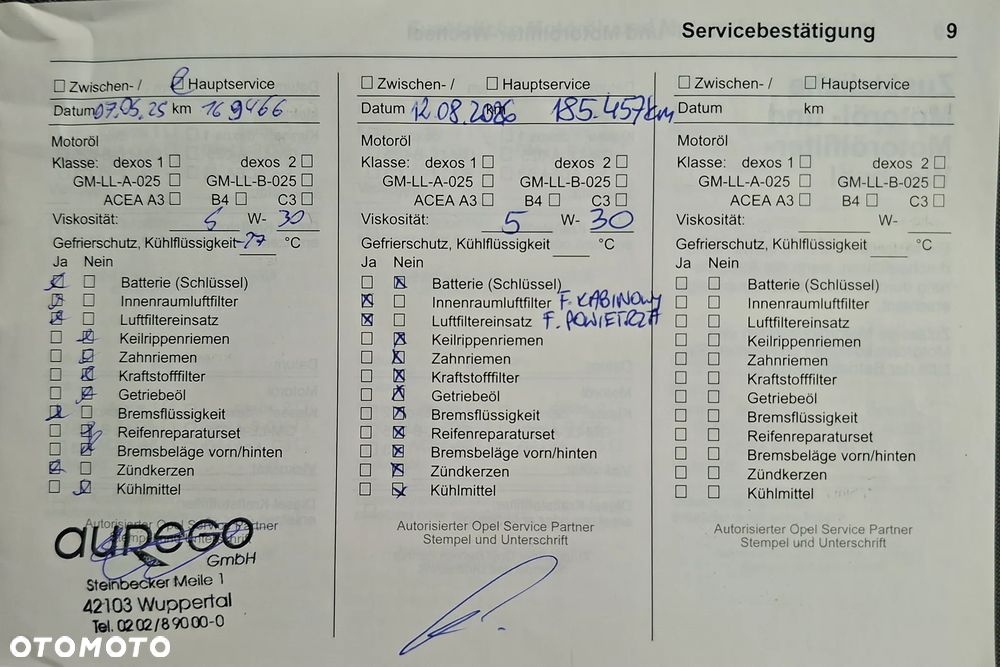 Servicebestätigung 9
Zwischen- / Hauptservice
Datum 07.05.25 km 169466
Motoröl
Klasse: dexos 1 dexos 2
GM-LL-A-025 GM-LL-B-025
ACEA A3 B4 C3
Viskosität: 5 W- 30
Gefrierschutz, Kühlflüssigkeit -27 °C
Ja Nein
Batterie (Schlüssel)
Innenraumluftfilter
Luftfiltereinsatz
Keilrippenriemen
Zahnriemen
Kraftstofffilter
Getriebeöl
Bremsflüssigkeit
Reifenreparaturset
Bremsbeläge vorn/hinten
Zündkerzen
Kühlmittel
Autorisierter Opel Service Partner
Stempel und Unterschrift
aurego
GmbH
Steinbecker Meile 1
42103 Wuppertal
Tel. 0202/89000-0
Zwischen- / Hauptservice
Datum 12.08.2026 km 185.457km
Motoröl
Klasse: dexos 1 dexos 2
GM-LL-A-025 GM-LL-B-025
ACEA A3 B4 C3
Viskosität: 5 W- 30
Gefrierschutz, Kühlflüssigkeit °C
Ja Nein
Batterie (Schlüssel)
Innenraumluftfilter F. KABINOWY
Luftfiltereinsatz F. POWIETRZA
Keilrippenriemen
Zahnriemen
Kraftstofffilter
Getriebeöl
Bremsflüssigkeit
Reifenreparaturset
Bremsbeläge vorn/hinten
Zündkerzen
Kühlmittel
Autorisierter Opel Service Partner
Stempel und Unterschrift
Zwischen- / Hauptservice
Datum km
Motoröl
Klasse: dexos 1 dexos 2
GM-LL-A-025 GM-LL-B-025
ACEA A3 B4 C3
Viskosität: W-
Gefrierschutz, Kühlflüssigkeit °C
Ja Nein
Batterie (Schlüssel)
Innenraumluftfilter
Luftfiltereinsatz
Keilrippenriemen
Zahnriemen
Kraftstofffilter
Getriebeöl
Bremsflüssigkeit
Reifenreparaturset
Bremsbeläge vorn/hinten
Zündkerzen
Kühlmittel
Autorisierter Opel Service Partner
Stempel und Unterschrift
OTOMOTO